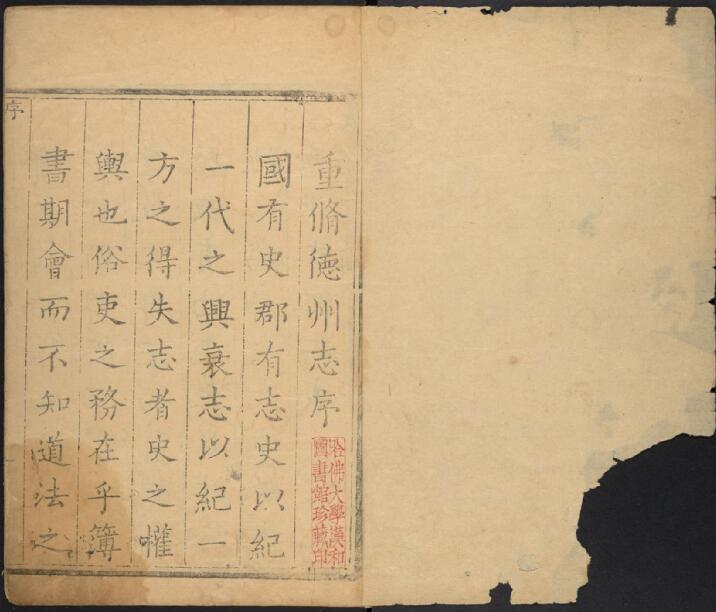 重脩徳州志序
哈佛大學漢和
圖書館珍藏印
國有史郡有志史以紀
一代之興衰志以紀一
方之得失志者史之權
輿也俗吏之務在乎簿
書期會而不知道法之
序